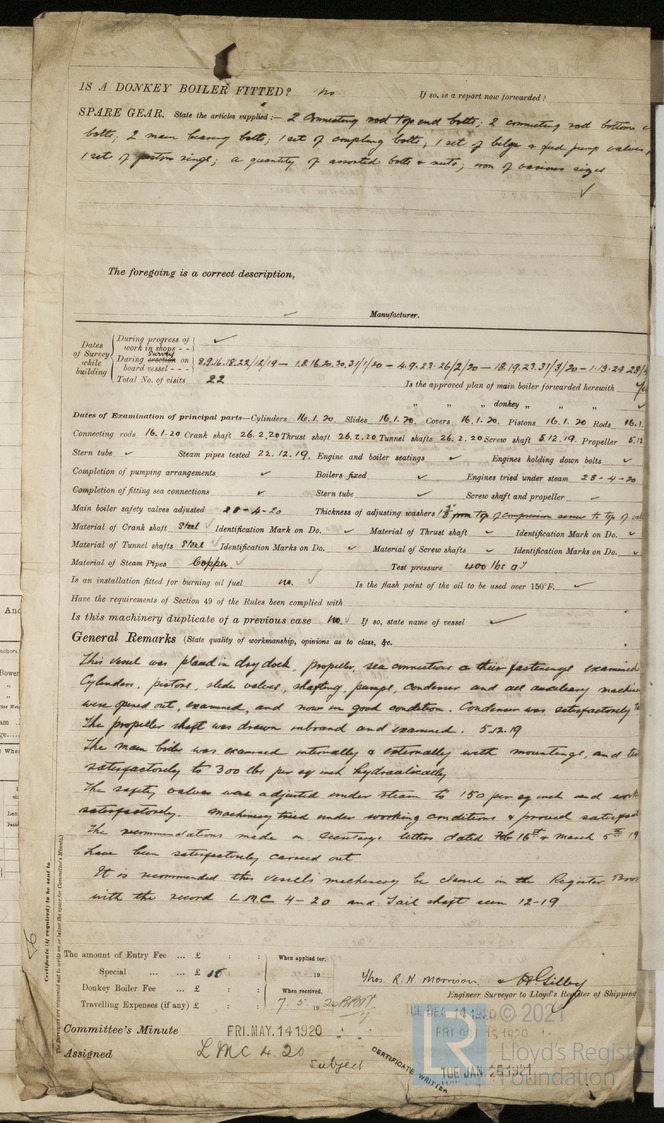 IS A DONKEY BOILER FITTED? No If so, is a report now forwarded?
SPARE GEAR. State the articles supplied:— 2 connecting rod top end bolts; 2 connecting rod bottom
bolts; 2 main bearing bolts; 1 set of coupling bolts; 1 set of bilge & feed pump valves,
1 set of piston rings; a quantity of assorted bolts & nuts; iron of various sizes
The foregoing is a correct description,
Manufacturer.
Dates of Survey while building
During progress of work in shops - -
During erection Survey on board vessel - - - 8.9.16.18.22/12/19 — 1.8.16.20.30.31/1/20 — 4.9.23.26/2/20 — 18.19.23.31/3/20 — 1.19.29.28/
Total No. of visits 22 Is the approved plan of main boiler forwarded herewith
" " " donkey " " "
Dates of Examination of principal parts—Cylinders 16.1.20 Slides 16.1.20. Covers 16.1.20. Pistons 16.1.20 Rods 16.1.
Connecting rods 16.1.20 Crank shaft 26.2.20 Thrust shaft 26.2.20 Tunnel shafts 26.2.20 Screw shaft 5.12.19. Propeller 5.12
Stern tube Steam pipes tested 22.12.19. Engine and boiler seatings Engines holding down bolts
Completion of pumping arrangements Boilers fixed Engines tried under steam 28-4-20
Completion of fitting sea connections Stern tube Screw shaft and propeller
Main boiler safety valves adjusted 28-4-20 Thickness of adjusting washers from top of compression screw to top of
Material of Crank shaft Steel Identification Mark on Do. Material of Thrust shaft Identification Mark on Do.
Material of Tunnel shafts Steel Identification Marks on Do. Material of Screw shafts Identification Marks on Do.
Material of Steam Pipes Copper Test pressure 400 lbs □"
Is an installation fitted for burning oil fuel no. Is the flash point of the oil to be used over 150°F.
Have the requirements of Section 49 of the Rules been complied with
Is this machinery duplicate of a previous case No. If so, state name of vessel
General Remarks (State quality of workmanship, opinions as to class, &c.
This vessel was placed in dry dock, propeller, sea connections & their fastenings examined
Cylinders, pistons, slide valves, shafting, pumps, condenser and all auxiliary machine
were opened out, examined, and now in good condition. Condenser was satisfactorily
The propeller shaft was drawn inboard and examined. 5.12.19
The main boiler was examined internally & externally with mountings, and
satisfactorily to 300 lbs per sq inch hydraulically
The safety valves were adjusted under steam to 150 per sq inch and work
satisfactorily. Machinery tried under working conditions & proved satisfact
The recommendations made in Secretary's letters dated Feb 16th & March 5th 19
have been satisfactorily carried out
It is recommended this vessel's machinery be classed in the Register Book
with the record L.M.C 4-20 and Tail shaft seen 12-19
Certificate (if required) to be sent to
The amount of Entry Fee ... £ : : When applied for,
Special ... ... £ 15 : : 19
Donkey Boiler Fee ... £ : : When received,
Travelling Expenses (if any) £ : : 7.5.1920
Thos. R. H. Morrison & Gilby
Engineer Surveyor to Lloyd's Register of Shipping
Committee's Minute FRI. MAY. 14 1920
TUE. DEC. 14 1920
Assigned LMC 4.20
Subject
CERTIFICATE WRITTEN
TUE. JAN. 25 1921
© 2021
Lloyd's Register
Foundation